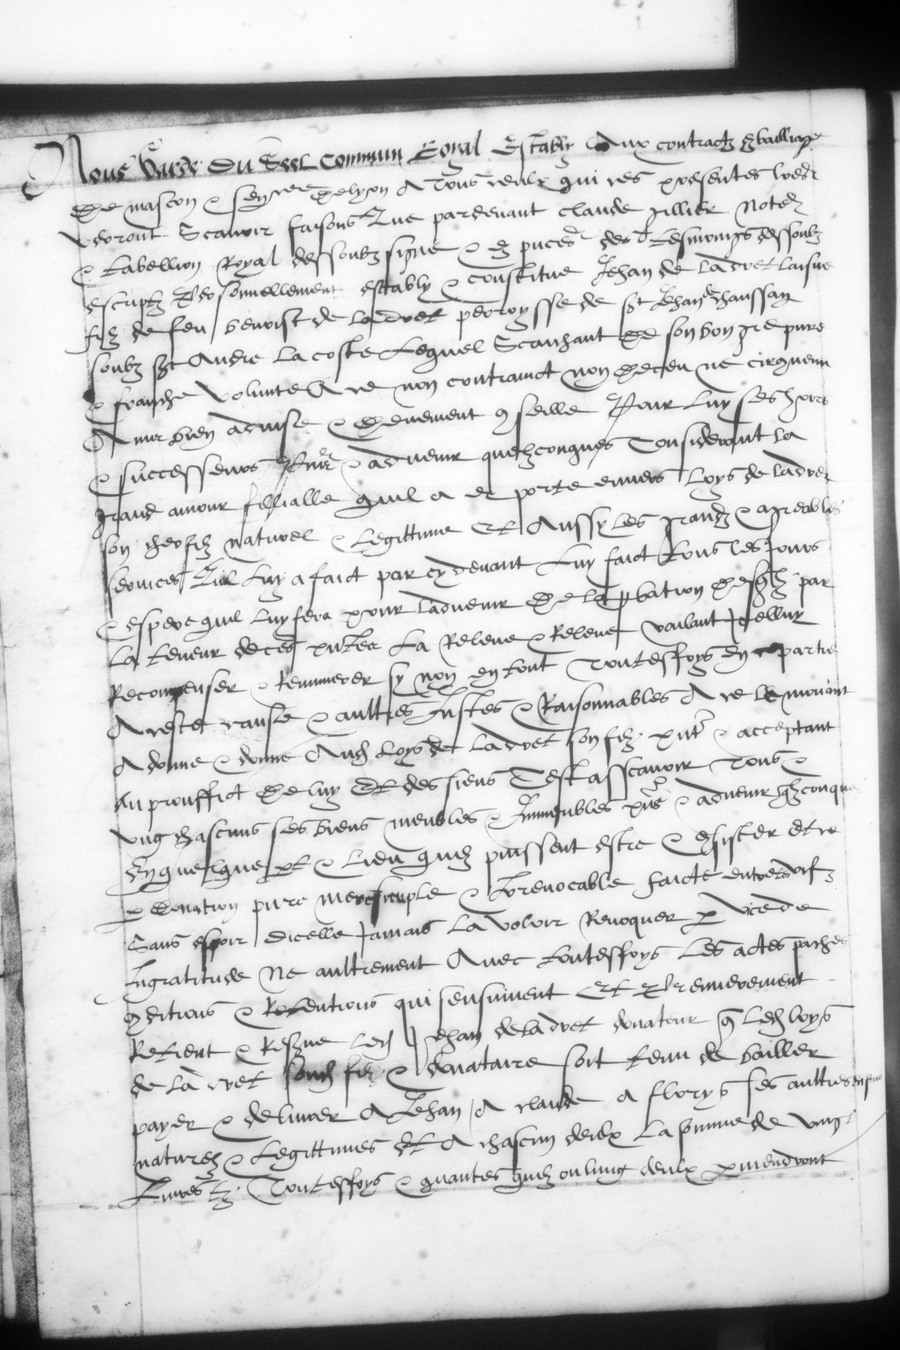 Nous Garde du Seel commun Royal Estably Aux contractz es bailliage
de mascon & sen^cee de lyon A Tous ceulx qui ces presentes l^res
verront Scavoir faisons Que pardevant claude not^e
& tabellion Royal dessoubz signe & en p^nce des tesmoings dessoubz
escriptz Personnellement estably & constitue Jehan de ladvet
filz de feu benoist de ladvet perroysse de s^t Jehan de chaussan
soubz s^t Andre la coste Lequel Scachant de son bon gre pure
& franche volunte A ce non contrainct non deceu ne circonvenu
Ains bien advise & conseille Pour Luy ses hoirs
& successeurs & advenir quelzconques Considerant la
grand amour filialle quil a et porte envers Loys de ladvet
son cher filz naturel & Legittime Et Aussy les grandz & agreables
services Quil Luy a faict par cy devant Luy faict tous les Jours
& espere quil luy fera pour ladvenir de la p^bation desq^lz par
La teneur de ces p^ntes La Releve & Releve voulant Icelluy
Recompenser & Remunerer sy non en tout Toutesfoys en partie
A ceste cause & aultres Justes & Raisonnables A ce le mouvant
A donne & donne Aud^t Loys de Ladvet son filz p^nt & acceptant
Au prouffict de luy Et des siens Cest asscavoir Tous &
ung chascuns ses biens meubles & Immeubles p^ns & advenir q^lzconques
En quelque p^t & Lieu quilz puissent estre & consister Et ce
p donation pure simple & Irrevocable faicte entre vifz
Sans espoir dicelle Jamais la voloir Revoquer p vice de
Ingratitude Ne aultrement Avec toutesfoys Les actes paches
conditions & Retentions qui sensuivent Et Premierement
Retient & Reserve Led^t Jehan de ladvet donateur q^e Led^t loys
de ladvet sond^t filz & donataire soit tenu de bailler
payer & delivrer A Jehan A claude A florys ses aultres enfans
naturelz & Legittimes Et A chascun deulx La somme de vingt
Livres t^z Toutesfoys & quantes quilz ou lung deulx